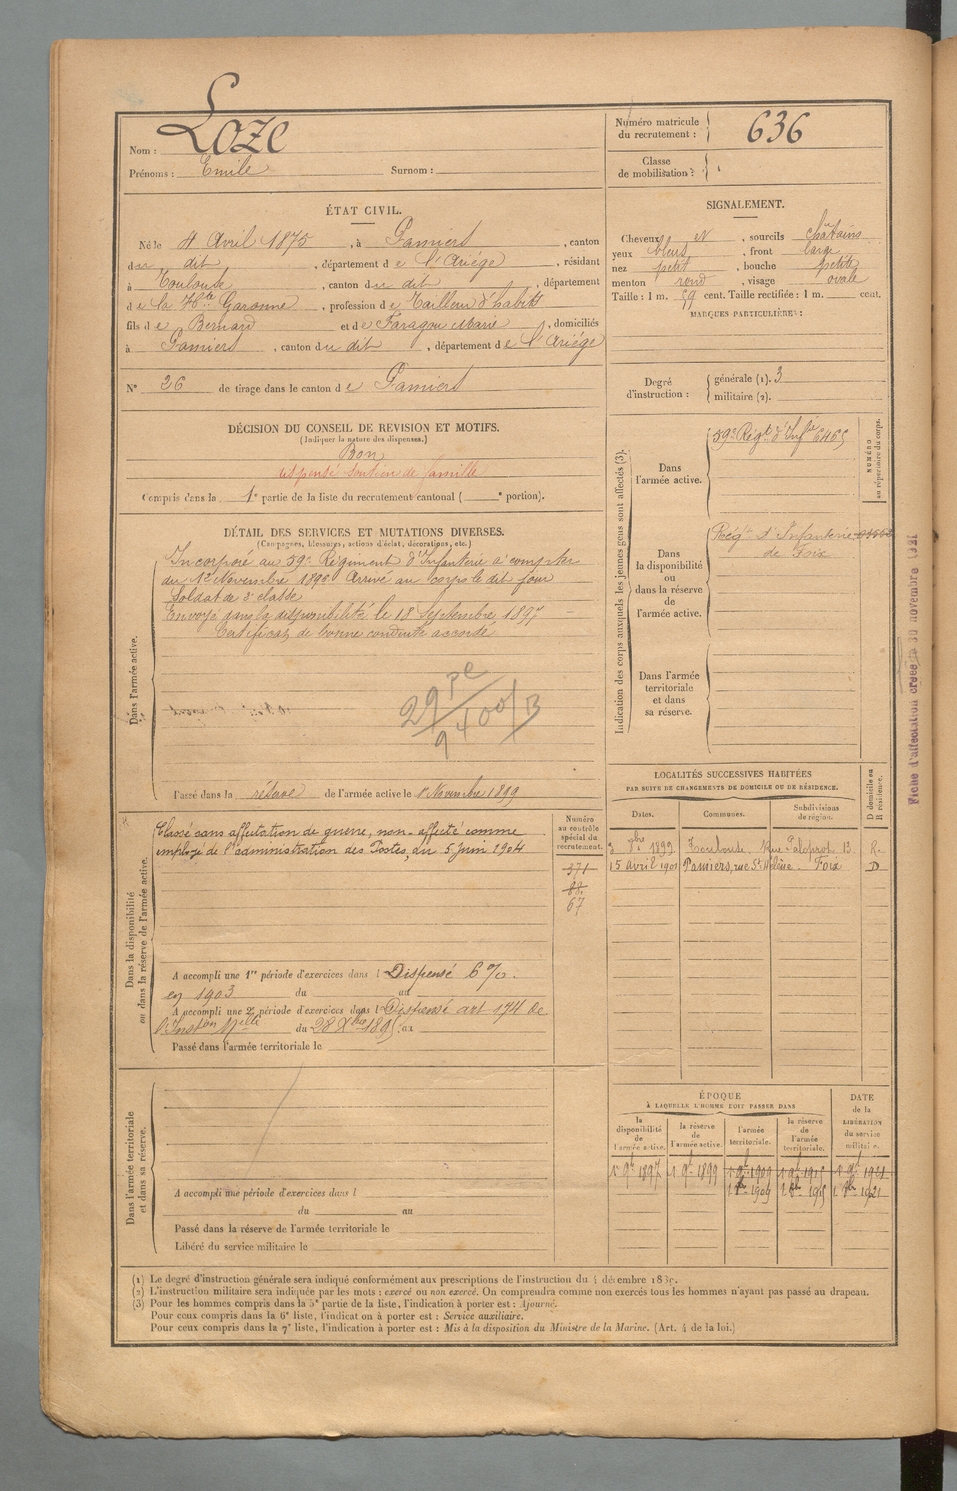 Nom : Loze
Prénoms : Emile Surnom :
Numéro matricule du recrutement : 636
Classe de mobilisation :
ÉTAT CIVIL.
Né le 4 Avril 1875, à Pamiers, canton
du dit, département de l'Ariège, résidant
à Toulouse, canton du dit, département
de la Hte Garonne, profession de Tailleur d'habits
fils de Bernard et de Faragou Marie, domiciliés
à Pamiers, canton du dit, département de l'Ariège
N° 26 de tirage dans le canton de Pamiers
SIGNALEMENT.
Cheveux et, sourcils châtains
yeux bleus, front large
nez petit, bouche petite
menton rond, visage ovale
Taille : 1 m. 59 cent. Taille rectifiée : 1 m. cent.
MARQUES PARTICULIÈRES :
Degré d'instruction : générale (1). 3
militaire (2).
DÉCISION DU CONSEIL DE REVISION ET MOTIFS.
(Indiquer la nature des dispenses.)
Bon
dispensé soutien de famille
Compris dans la 1e partie de la liste du recrutement cantonal ( e portion).
DÉTAIL DES SERVICES ET MUTATIONS DIVERSES.
(Campagnes, blessures, actions d'éclat, décorations, etc.)
Dans l'armée active.
Incorporé au 59e Régiment d'Infanterie à compter
du 1er Novembre 1896 Arrivé au corps le dit jour
Soldat de 2e classe
Envoyé dans la disponibilité le 18 Septembre 1897
Certificat de bonne conduite accordé
29 pe
9400/B
Passé dans la réserve de l'armée active le 1er Novembre 1899
Indication des corps auxquels les jeunes gens sont affectés (3).
NUMÉRO au répertoire du corps.
Dans l'armée active.
59e Régt d'Infie 6465
Dans la disponibilité ou dans la réserve de l'armée active.
Régt d'Infanterie
de Foix
Dans l'armée territoriale et dans sa réserve.
Fiche d'affectation créée le 30 novembre
Dans la disponibilité ou dans la réserve de l'armée active.
Classé sans affectation de guerre, non-affecté comme
employé de l'administration des Postes, du 5 juin 1904
Numéro au contrôle spécial du recrutement.
371
88
67
A accompli une 1re période d'exercices dans l Dispensé 6 %
en 1903 du au
A accompli une 2e période d'exercices dans l Dispensé art 174 de
l'Inston Mlle du 28 Xbre 1895. au
Passé dans l'armée territoriale le
LOCALITÉS SUCCESSIVES HABITÉES
PAR SUITE DE CHANGEMENTS DE DOMICILE OU DE RÉSIDENCE.
D domicile ou R résidence.
Dates. Communes. Subdivisions de région.
3 bre 1899 Toulouse Rue Palaprat 13 R.
15 avril 1901 Pamiers, rue Ste Hélène. Foix D
Dans l'armée territoriale et dans sa réserve.
A accompli une période d'exercices dans l
du au
Passé dans la réserve de l'armée territoriale le
Libéré du service militaire le
ÉPOQUE
À LAQUELLE L'HOMME DOIT PASSER DANS
la disponibilité de l'armée active.
la réserve de l'armée active.
l'armée territoriale.
la réserve de l'armée territoriale.
DATE de la LIBÉRATION du service militaire.
1 9bre 1897 1 9bre 1899 1 9bre 1909 1 9bre 1915 1 9bre 1921
1. 8bre 1909 1 8bre 1915 1. 8bre 1921
(1) Le degré d'instruction générale sera indiqué conformément aux prescriptions de l'instruction du 4 décembre
(2) L'instruction militaire sera indiquée par les mots : exercé ou non exercé. On comprendra comme non exercés tous les hommes n'ayant pas passé au drapeau.
(3) Pour les hommes compris dans la 5e partie de la liste, l'indication à porter est : Ajourné.
Pour ceux compris dans la 6e liste, l'indication à porter est : Service auxiliaire.
Pour ceux compris dans la 7e liste, l'indication à porter est : Mis à la disposition du Ministre de la Marine. (Art. 4 de la loi.)